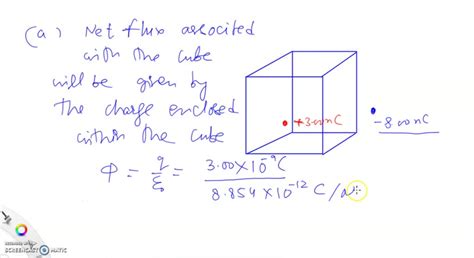 (a) Net flux associted
with the cube
will be given by
the charge enclosed
within the cube
+3.00nC
-8.00nC
Φ = q/ε₀ = 3.00×10⁻⁹C / 8.854×10⁻¹² C/
SCREENCAST MATIC